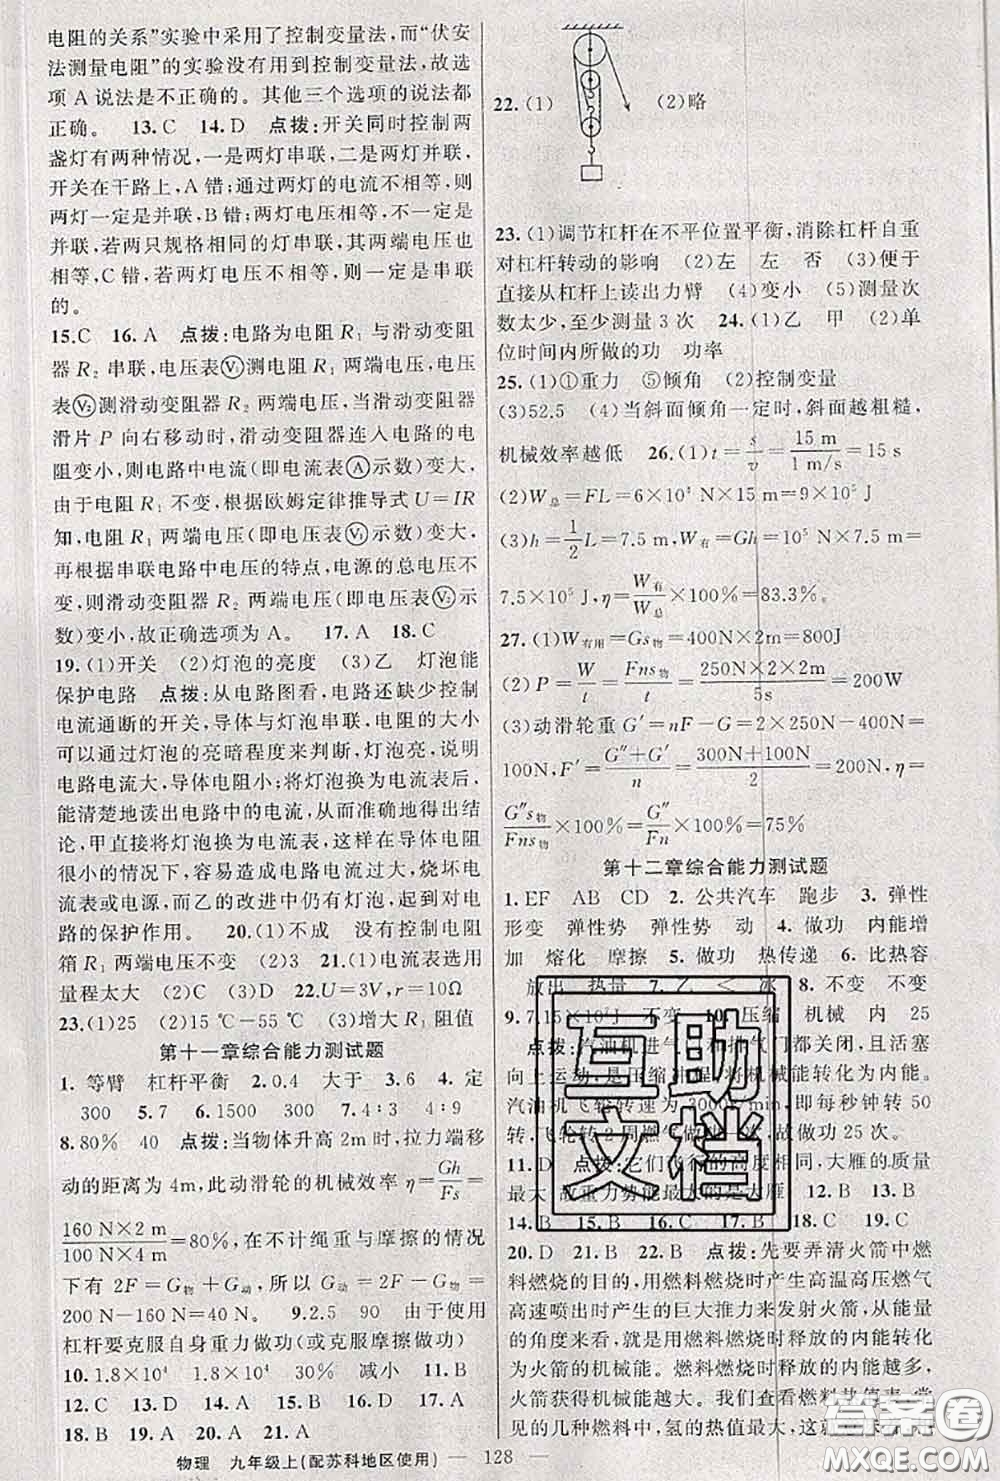 电阻的关系”实验中采用了控制变量法,而“伏安
法测量电阻”的实验没有用到控制变量法,故选
项 A 说法是不正确的。其他三个选项的说法都
正确。 13. C 14. D 点拨:开关同时控制两
盏灯有两种情况,一是两灯串联,二是两灯并联,
开关在干路上,A 错;通过两灯的电流不相等,则
两灯一定是并联,B 错;两灯电压相等,不一定是
并联,若两只规格相同的灯串联,其两端电压也
相等,C 错,若两灯电压不相等,则一定是串联
的。
15. C 16. A 点拨:电路为电阻 R₁ 与滑动变阻
器 R₂ 串联,电压表Ⓥ₁测电阻 R₁ 两端电压,电压
表Ⓥ₂测滑动变阻器 R₂ 两端电压,当滑动变阻器
滑片 P 向右移动时,滑动变阻器连入电路的电
阻变小,则电路中电流(即电流表Ⓐ示数)变大,
由于电阻 R₁ 不变,根据欧姆定律推导式 U=IR
知,电阻 R₁ 两端电压(即电压表Ⓥ₁示数)变大,
再根据串联电路中电压的特点,电源的总电压不
变,则滑动变阻器 R₂ 两端电压(即电压表Ⓥ₂示
数)变小,故正确选项为 A。 17. A 18. C
19. (1)开关 (2)灯泡的亮度 (3)乙 灯泡能
保护电路 点拨:从电路图看,电路还缺少控制
电流通断的开关,导体与灯泡串联,电阻的大小
可以通过灯泡的亮暗程度来判断,灯泡亮,说明
电路电流大,导体电阻小;将灯泡换为电流表后,
能清楚地读出电路中的电流,从而准确地得出结
论,甲直接将灯泡换为电流表,这样在导体电阻
很小的情况下,容易造成电路电流过大,烧坏电
流表或电源,而乙的改进中仍有灯泡,可以起到
电路的保护作用。 20. (1)不成 没有控制电阻
箱 R₁ 两端电压不变 (2)3 21. (1)电流表选用
量程太大 (2)C (3)D 22. U=3V,r=10Ω
23. (1)25 (2)15 ℃-55 ℃ (3)增大 R₁ 阻值
第十一章综合能力测试题
1. 等臂 杠杆平衡 2. 0.4 大于 3. 6 4. 定
300 5. 7 6. 1500 300 7. 4:3 4:9
8. 80% 40 点拨:当物体升高 2m 时,拉力端移
动的距离为 4m,此动滑轮的机械效率 η=Gh/Fs=
160 N×2 m/100 N×4 m=80%,在不计绳重与摩擦的情况
下有 2F=G物+G动,所以 G动=2F-G物=
200 N-160 N=40 N。 9. 2.5 90 由于使用
杠杆要克服自身重力做功(或克服摩擦做功)
10. 1.8×10⁴ 1.8×10⁴ 30% 减小 11. B
12. C 13. D 14. B 15. D 16. B 17. A
18. D 19. A 20. A 21. A
22. (1) (2)略
23. (1)调节杠杆在不平位置平衡,消除杠杆自重
对杠杆转动的影响 (2)左 左 否 (3)便于
直接从杠杆上读出力臂 (4)变小 (5)测量次
数太少,至少测量 3 次 24. (1)乙 甲 (2)单
位时间内所做的功 功率
25. (1)①重力 ⑤倾角 (2)控制变量
(3)52.5 (4)当斜面倾角一定时,斜面越粗糙,
机械效率越低 26. (1)t=s/v=15 m/1 m/s=15 s
(2)W总=FL=6×10⁴ N×15 m=9×10⁵ J
(3)h=1/2L=7.5 m,W有=Gh=10⁵ N×7.5 m=
7.5×10⁵ J η=W有/W总×100%=83.3%。
27. (1)W有用=Gs物=400N×2m=800J
(2)P=W/t=Fns物/t=250N×2×2m/5s=200W
(3)动滑轮重 G′=nF-G=2×250N-400N=
100N,F′=G″+G′/n=300N+100N/2=200N,η=
G″s物/Fns物×100%=G″/Fn×100%=75%
第十二章综合能力测试题
1. EF AB CD 2. 公共汽车 跑步 3. 弹性
形变 弹性势 弹性势 动 4. 做功 内能增
加 熔化 摩擦 5. 做功 热传递 6. 比热容
放出 热量 7. 乙 < 冰 8. 不变 不变
9. 7.15×10⁷J 不变 10. 压缩 机械 内 25
点拨:汽油机进气门和排气门都关闭,且活塞
向上运动,是压缩冲程,将机械能转化为内能。
汽油机飞轮转速为 3000r/min,即每秒钟转 50
转,飞轮转 2 周燃气做功一次,故做功 25 次。
11. D 点拨:它们飞行的高度相同,大雁的质量
最大 故重力势能最大的是大雁 12. B 13. A
14. B 15. B 16. D 17. B 18. C 19. C
20. D 21. A 22. B 点拨:先要弄清火箭中燃
料燃烧的目的,用燃料燃烧时产生高温高压燃气
高速喷出时产生的巨大推力来发射火箭,从能量
的角度来看,就是用燃料燃烧时释放的内能转化
为火箭的机械能。燃料燃烧时释放的内能越多,
火箭获得机械能越大。我们查看燃料热值表,常
见的几种燃料中,氢的热值最大,这就是
互助
文档
答案圈
MXQE.COM
物理 九年级上(配苏科地区使用) — 128 —